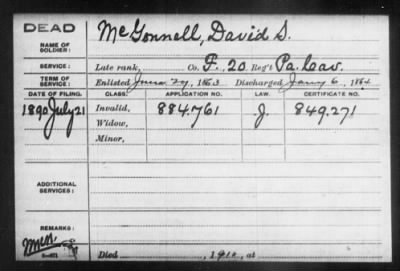 DEAD
NAME OF SOLDIER: McGonnell, David S.
SERVICE: Late rank, Co. F. 20 Reg't Pa. Cav.
TERM OF SERVICE: Enlisted June 29, 1863 Discharged Jany 6, 1864
DATE OF FILING. CLASS. APPLICATION NO. LAW. CERTIFICATE NO.
1890 July 21 Invalid, 884.761 J. 849.271
Widow,
Minor,
ADDITIONAL SERVICES:
REMARKS:
Died , 191 , at